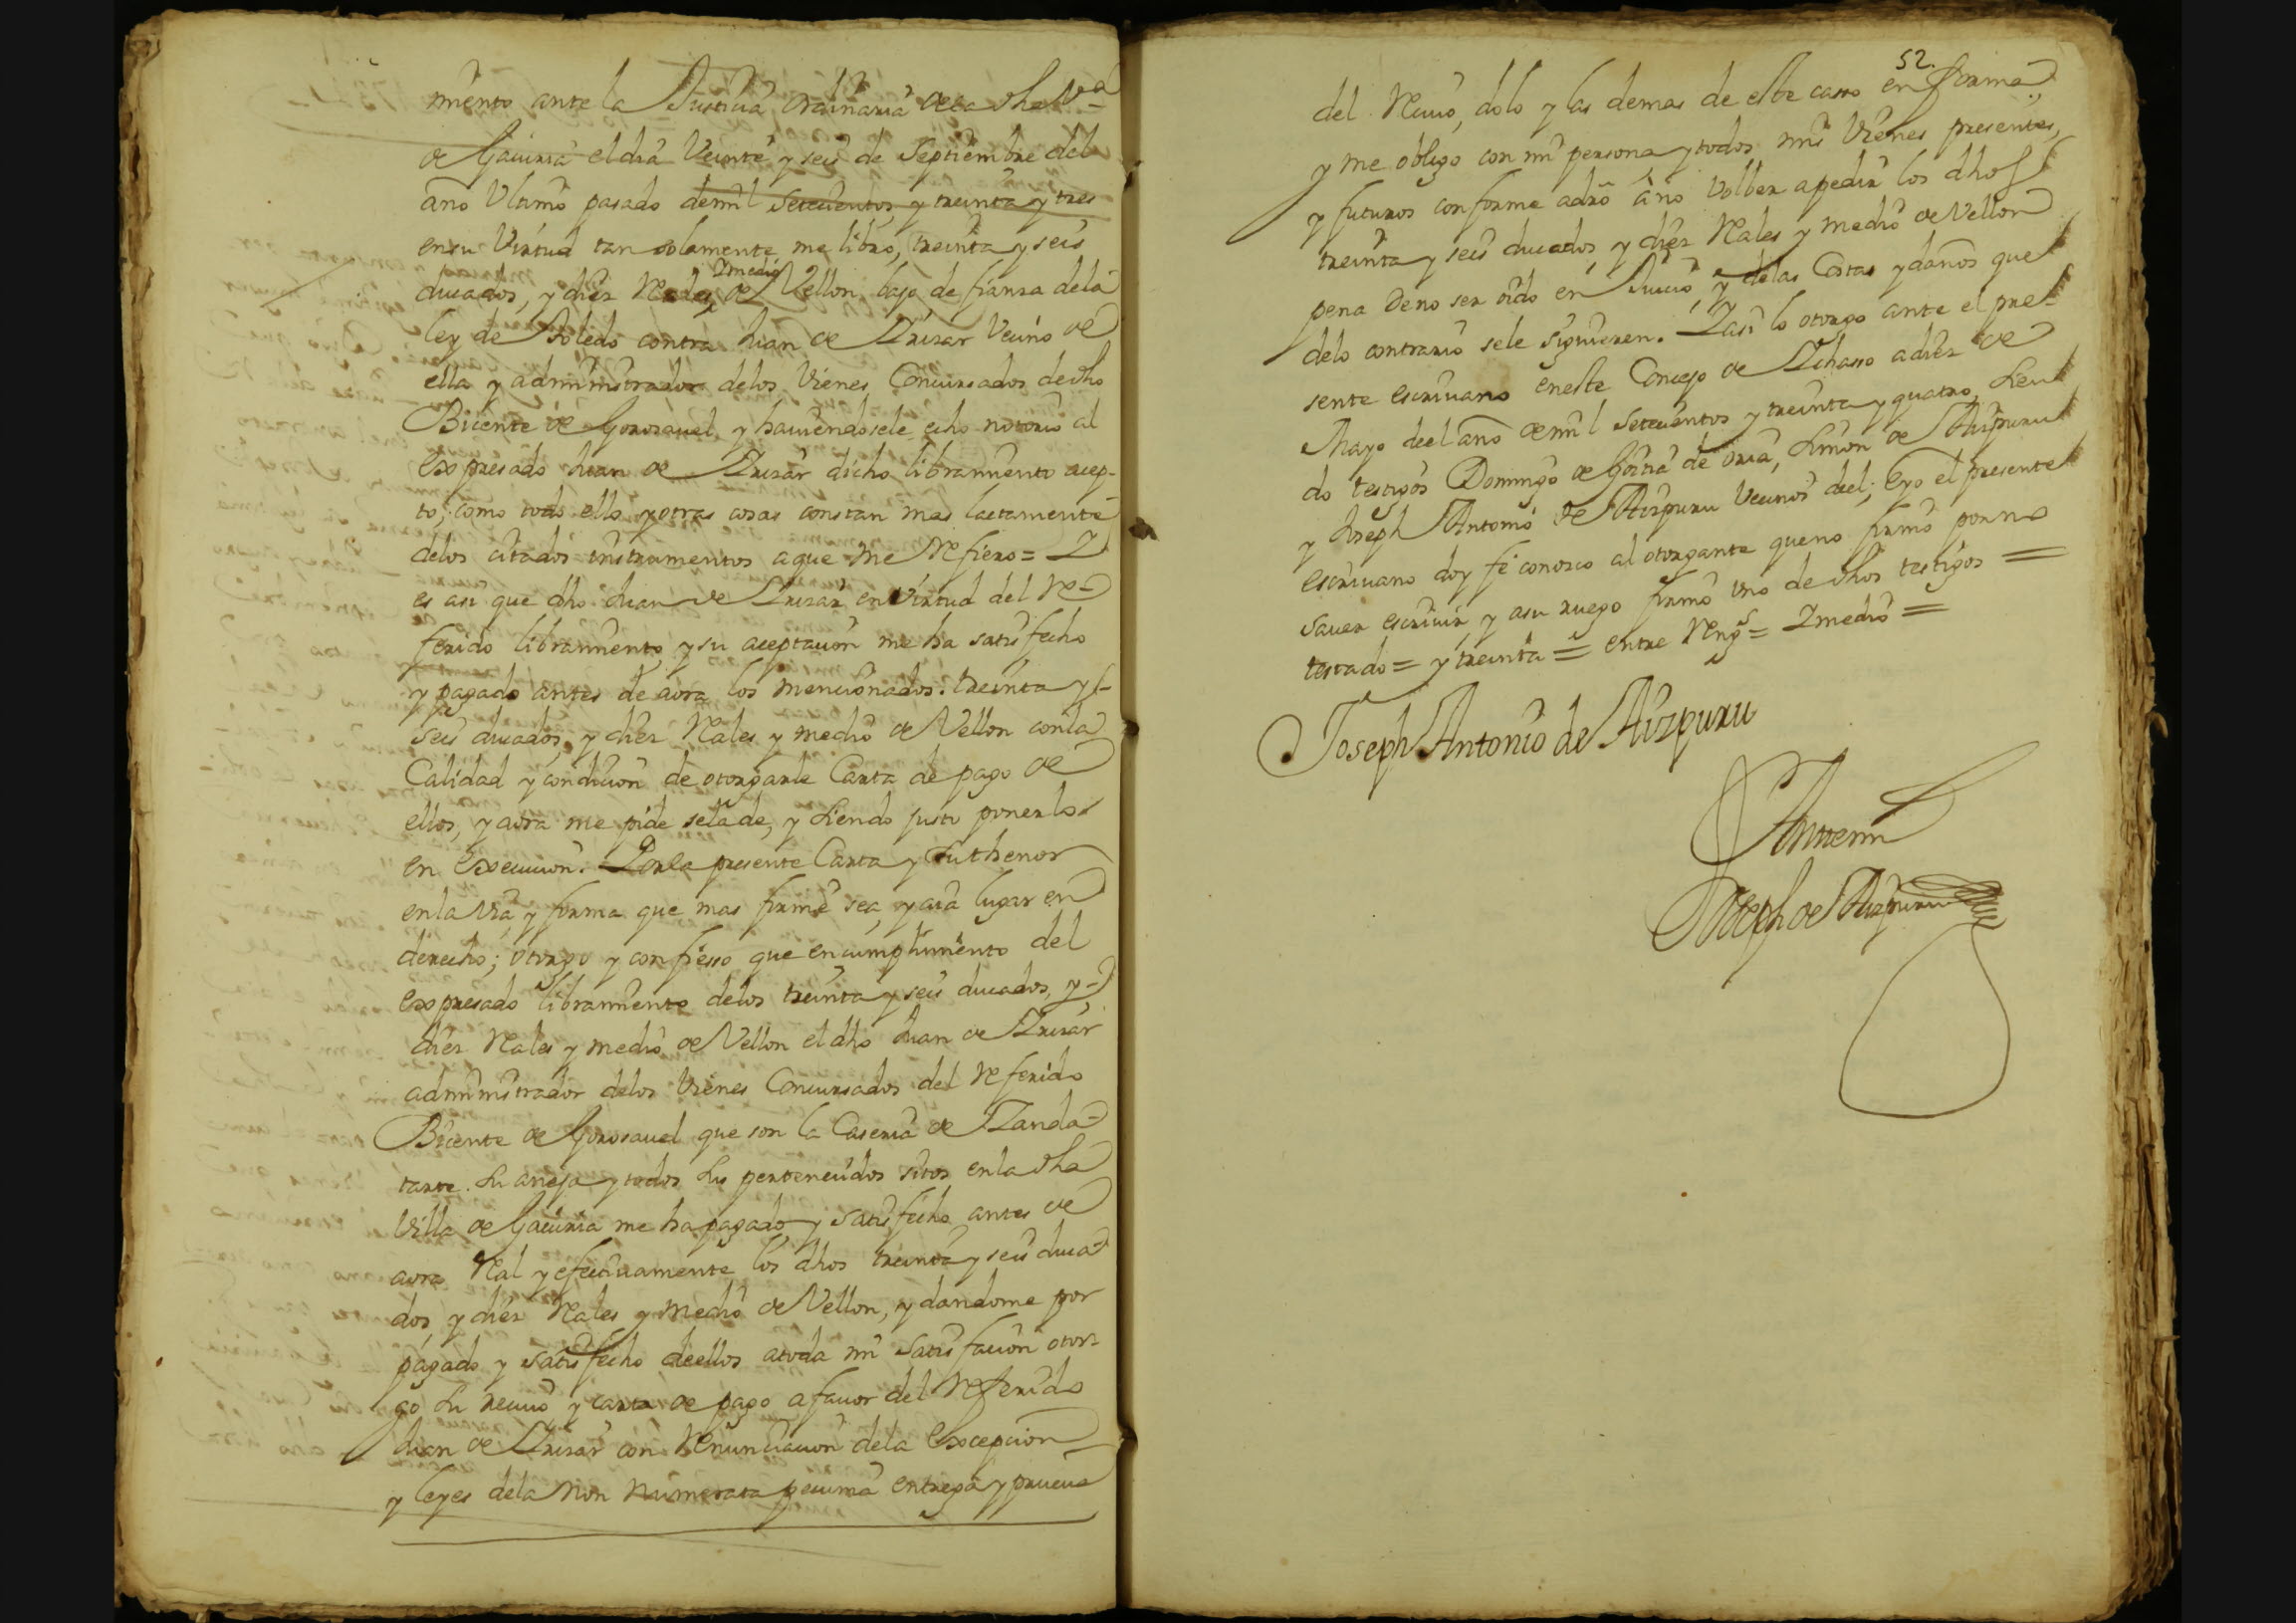 miento ante la Justicia ordinaria dela dha Vª
de Gaviria el dia Veinte y seis de Septiembre del
año Ultimo pasado demil setecientos y treinta y tres
ensu Virtud tan solamente me libro, treinta y seis
ducados, y diez Reales Ymedio de Vellon bajo de fianza dela
ley de Toledo contra Juan de Irizar Vecino de
ella y administrador delos Vienes Concursados de dho
Bicente de Gorosavel, y haviendosele echo notorio al
expresado Juan de Irizar dicho libramiento acep-
to; como todo ello y otras cosas constan mas lactamente
delos citados instrumentos aque me Refiero = Y
es asi que dho Juan de Irizar en Virtud del Re-
ferido libramiento y su aceptacion me ha satisfecho
y pagado antes de aora los mencionados. treinta y
seis ducados, y diez Reales y medio de Vellon conla
Calidad y condicion de otorgarle Carta de pago de
ellos, y aora me pide selade, y siendo justo ponerlo
en execucion. Porla presente Carta y suthenor
enla via, y forma que mas firme sea, y aia lugar en
derecho; otorgo y confiesso que encumplimiento del
expresado libramiento delos treinta y seis ducados, y
diez Reales y medio de Vellon el dho Juan de Irizar
administrador delos Vienes Concursados del Referido
Bicente de Gorosavel que son la Caseria de
tarte. su aneja y todos sus pertenecidos sitos enla dha
Villa de Gaviria me ha pagado y satisfecho antes de
aora Real y efectivamente los dhos treinta y seis duca-
dos, y diez Reales y medio de Vellon, y dandome por
pagado y satisfecho deellos atoda mi satisfacion otor-
go su recivo y carta de pago a favor del Referido
Juan de Irizar con Renunciacion dela Excepcion
y leyes dela non numerata pecunia entrega y prueva
52.
del Recivo, dolo y las demas de este casso en forma.
y me obligo con mi persona y todos mis Vienes presentes,
y futuros conforme adrõ a no volber apedir los dhos
treinta y seis ducados, y diez Reales y medio de Vellon
pena deno ser oido en Juicio, y delas Costas y daños que
delo contrario sele siguieren. Yasi lo otorgo ante el pre-
sente escrivano eneste Concejo de Ychasso adiez de
Mayo deel año demil setecientos y treinta y quatro, sien-
do testigos Domingo de Goitia de oria, Simon de Aizpuru
y Joseph Antonio de Aizpuru Vecinos deel; Eyo el presente
escrivano doy fe conosco al otorgante queno firmo porno
saver escrivir, y asu ruego firmo uno de dhos testigos =
testado = y treinta = entre Rengs = Ymedio =
Joseph Antonio de Aizpuru
Antemi
Joseph de Aizpuru